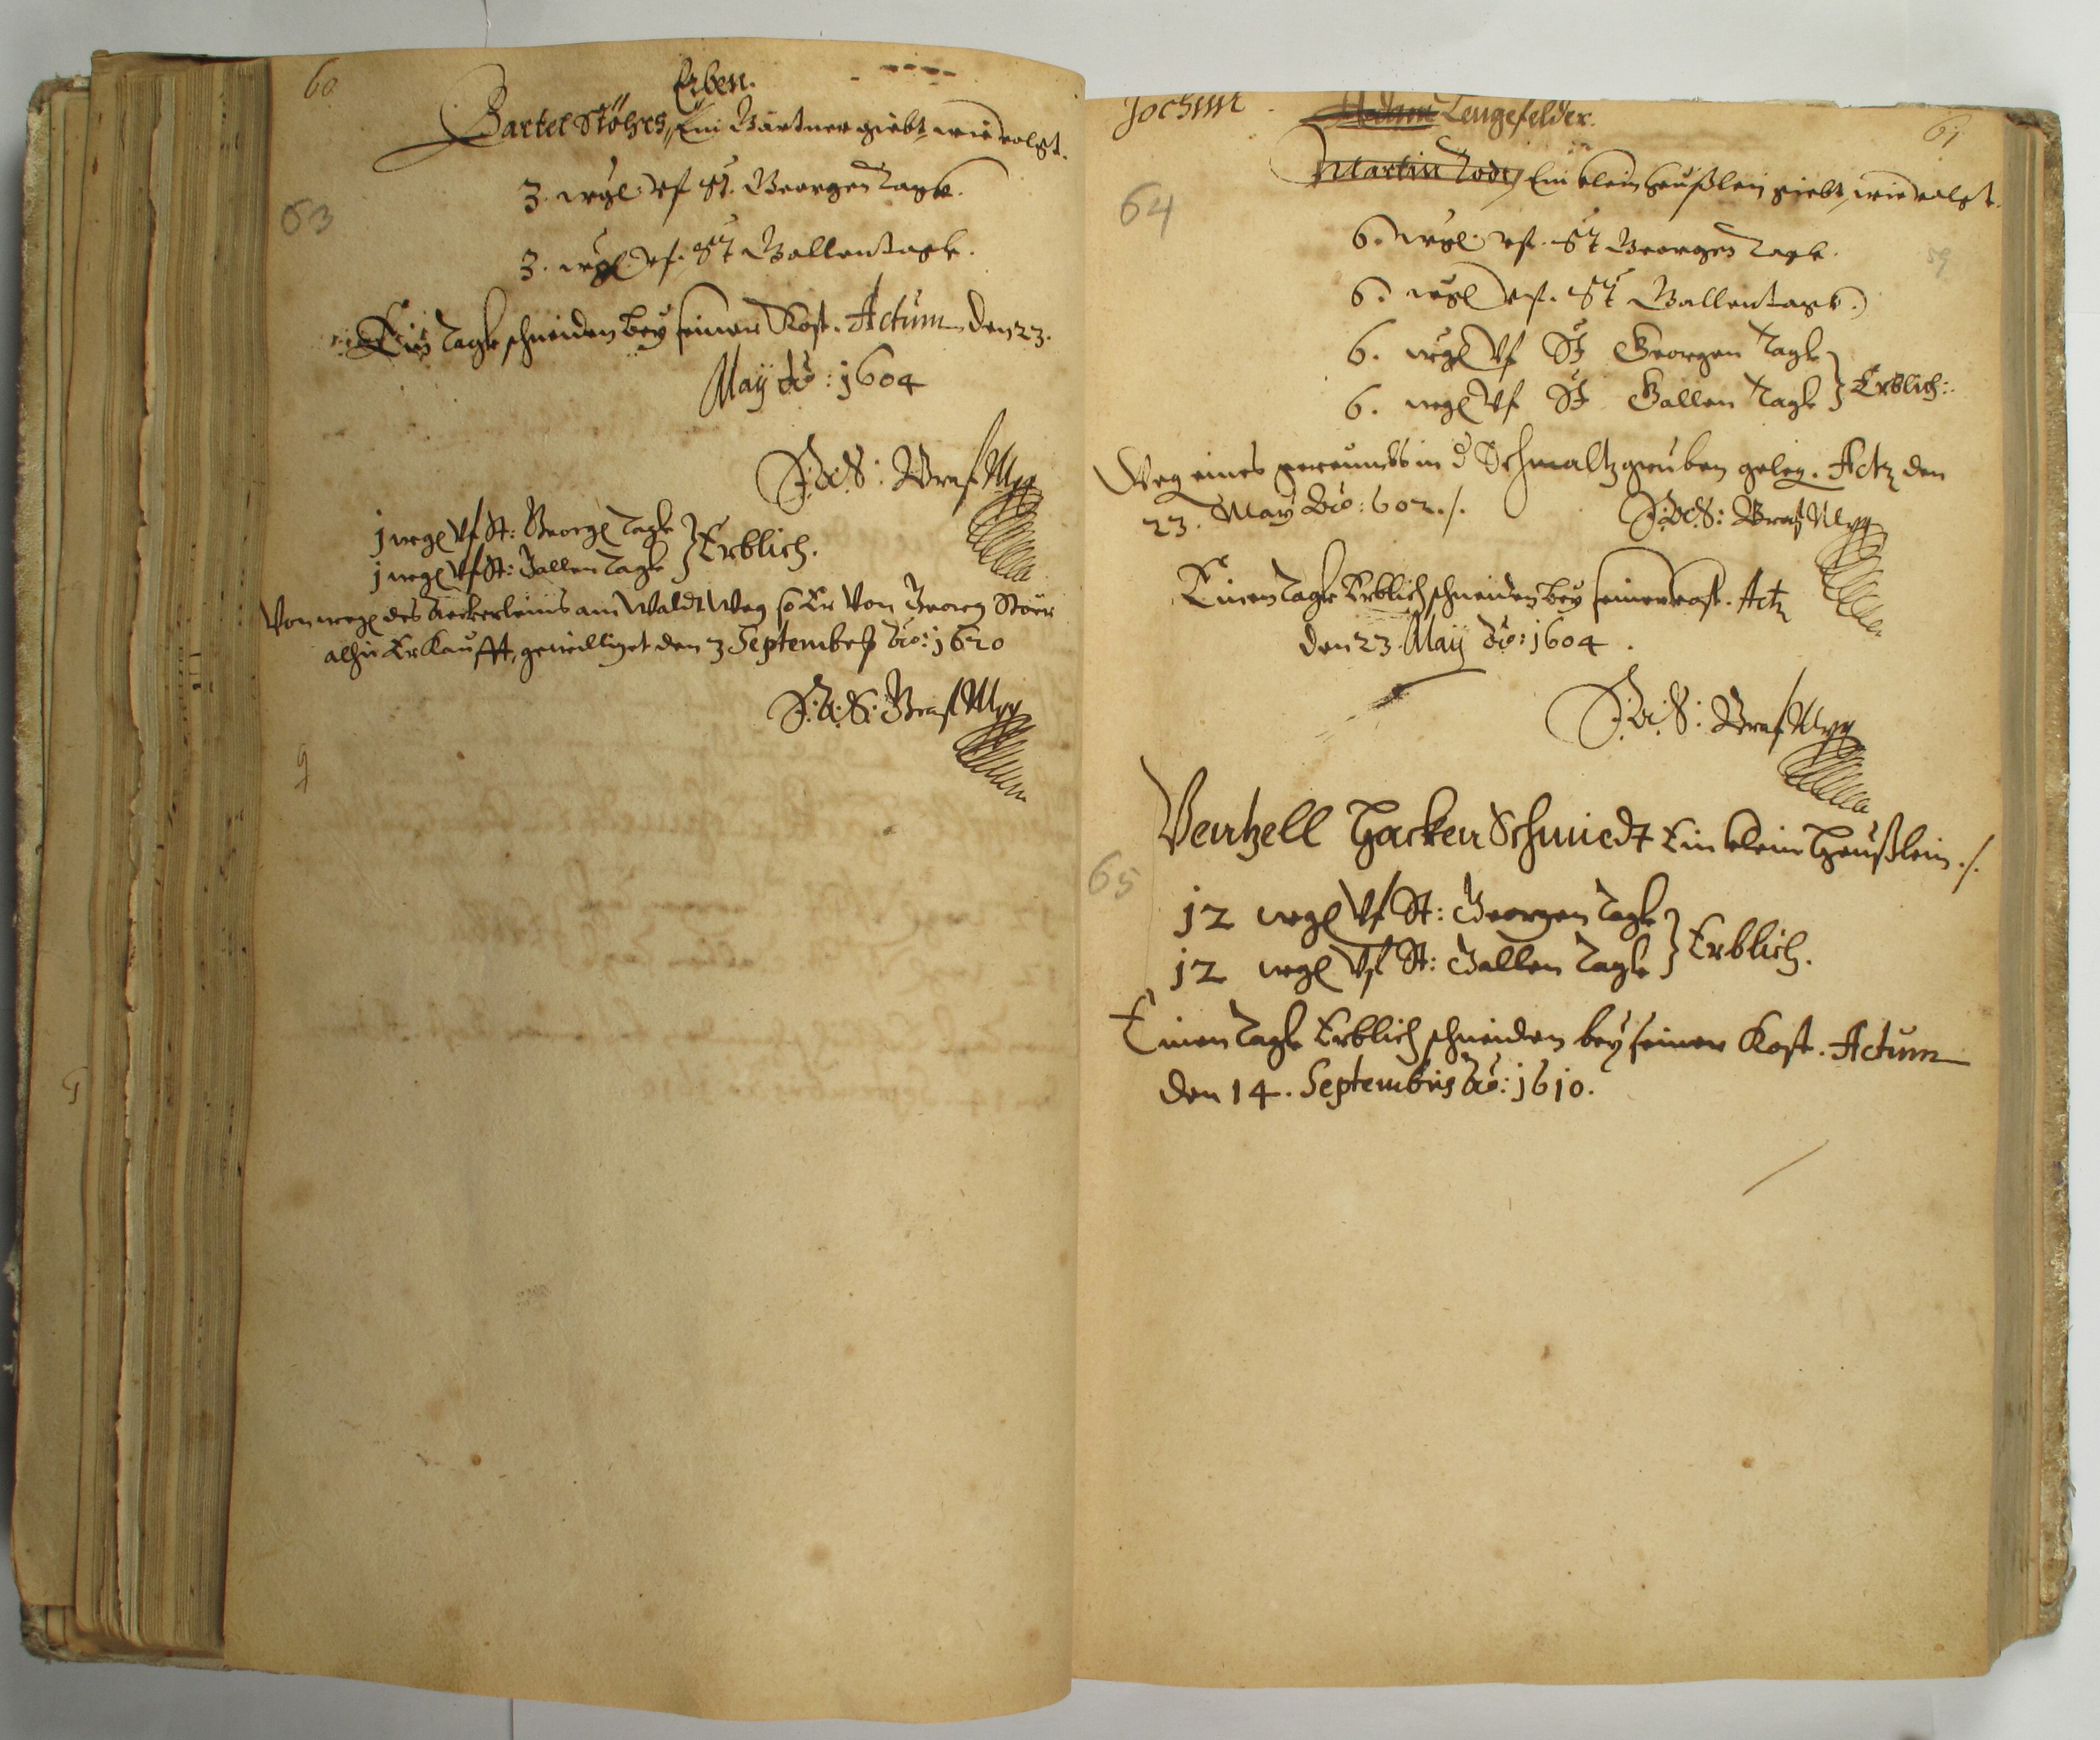 60
Erben.
Bartel Stöhrs, Ein Gärtner giebt wie volgt.
63
3. wgl. vf St. Georgen Tagk.
3. wgl. vf. St Gallen Tagk.
Ein Tagk schneiden bey seiner Kost. Actum den 23.
Maij Ao: 1604
1 wgl Vf St: Georg Tagk
1 wgl Vf St: Gallen Tagk } Erblich.
Von wegen des Ackerleins am Waldt Weg so Er Von Georg Stöer
alhie Er Kaufft, gewilliget den 3 September Ao: 1620
9
Jochim Adam Lengefelder.
61
Martin Ein klein Heußlein giebt, wie volgt.
64
59
6. wgl. vf. St Georgen Tagk.
6. wgl vf. St Gallen Tagk.
6. wgl Vf St Georgen Tagk
6. wgl Vf St Gallen Tagk } Erblich:
Weg eines gereumbts in d Schmaltzgruben geleg. Act den
23. May Ao: 602./.
Einen Tagk Erblich schneiden bey seiner Kost. Act
den 23 Maij Ao: 1604.
Wentzell Hacken Schmiedt Ein klein Heußlein./.
65
12 wgl Vf St: Georgen Tagk
12 wgl Vf St: Gallen Tagk } Erblich.
Einen Tagk Erblich schneiden bey seiner Kost. Actum
den 14. Septembris Ao: 1610.